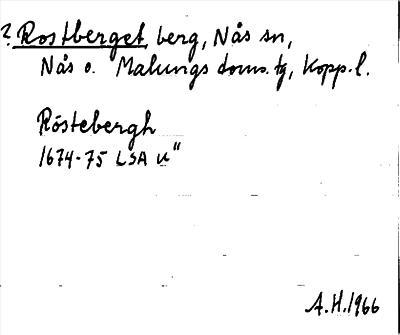 ? Rostberget, berg, Nås sn,
Nås o. Malungs doms. tg, Kopp. l.
Röstebergh
1674-75 LSA u"
A.H. 1966